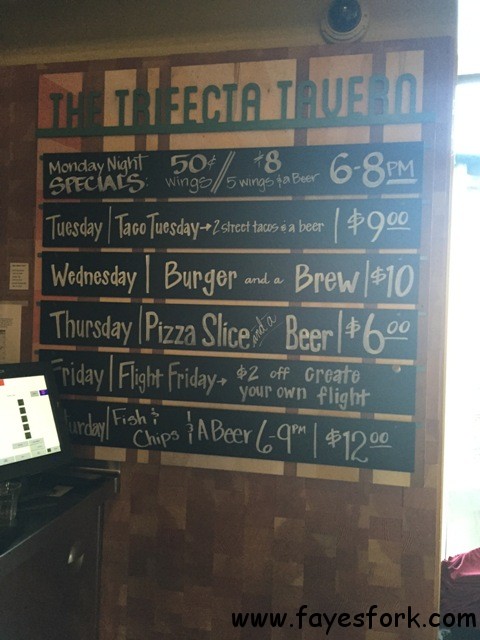 THE TRIFECTA TAVERN
Monday Night SPECIALS: 50¢ wings // $8 5 wings & a Beer 6-8PM
Tuesday | Taco Tuesday → 2 street tacos & a beer | $9.00
Wednesday | Burger and a Brew | $10
Thursday | Pizza Slice and a Beer | $6.00
Friday | Flight Friday → $2 off create
your own flight
urday | Fish &
Chips & A Beer 6-9PM | $12.00
www.fayesfork.com